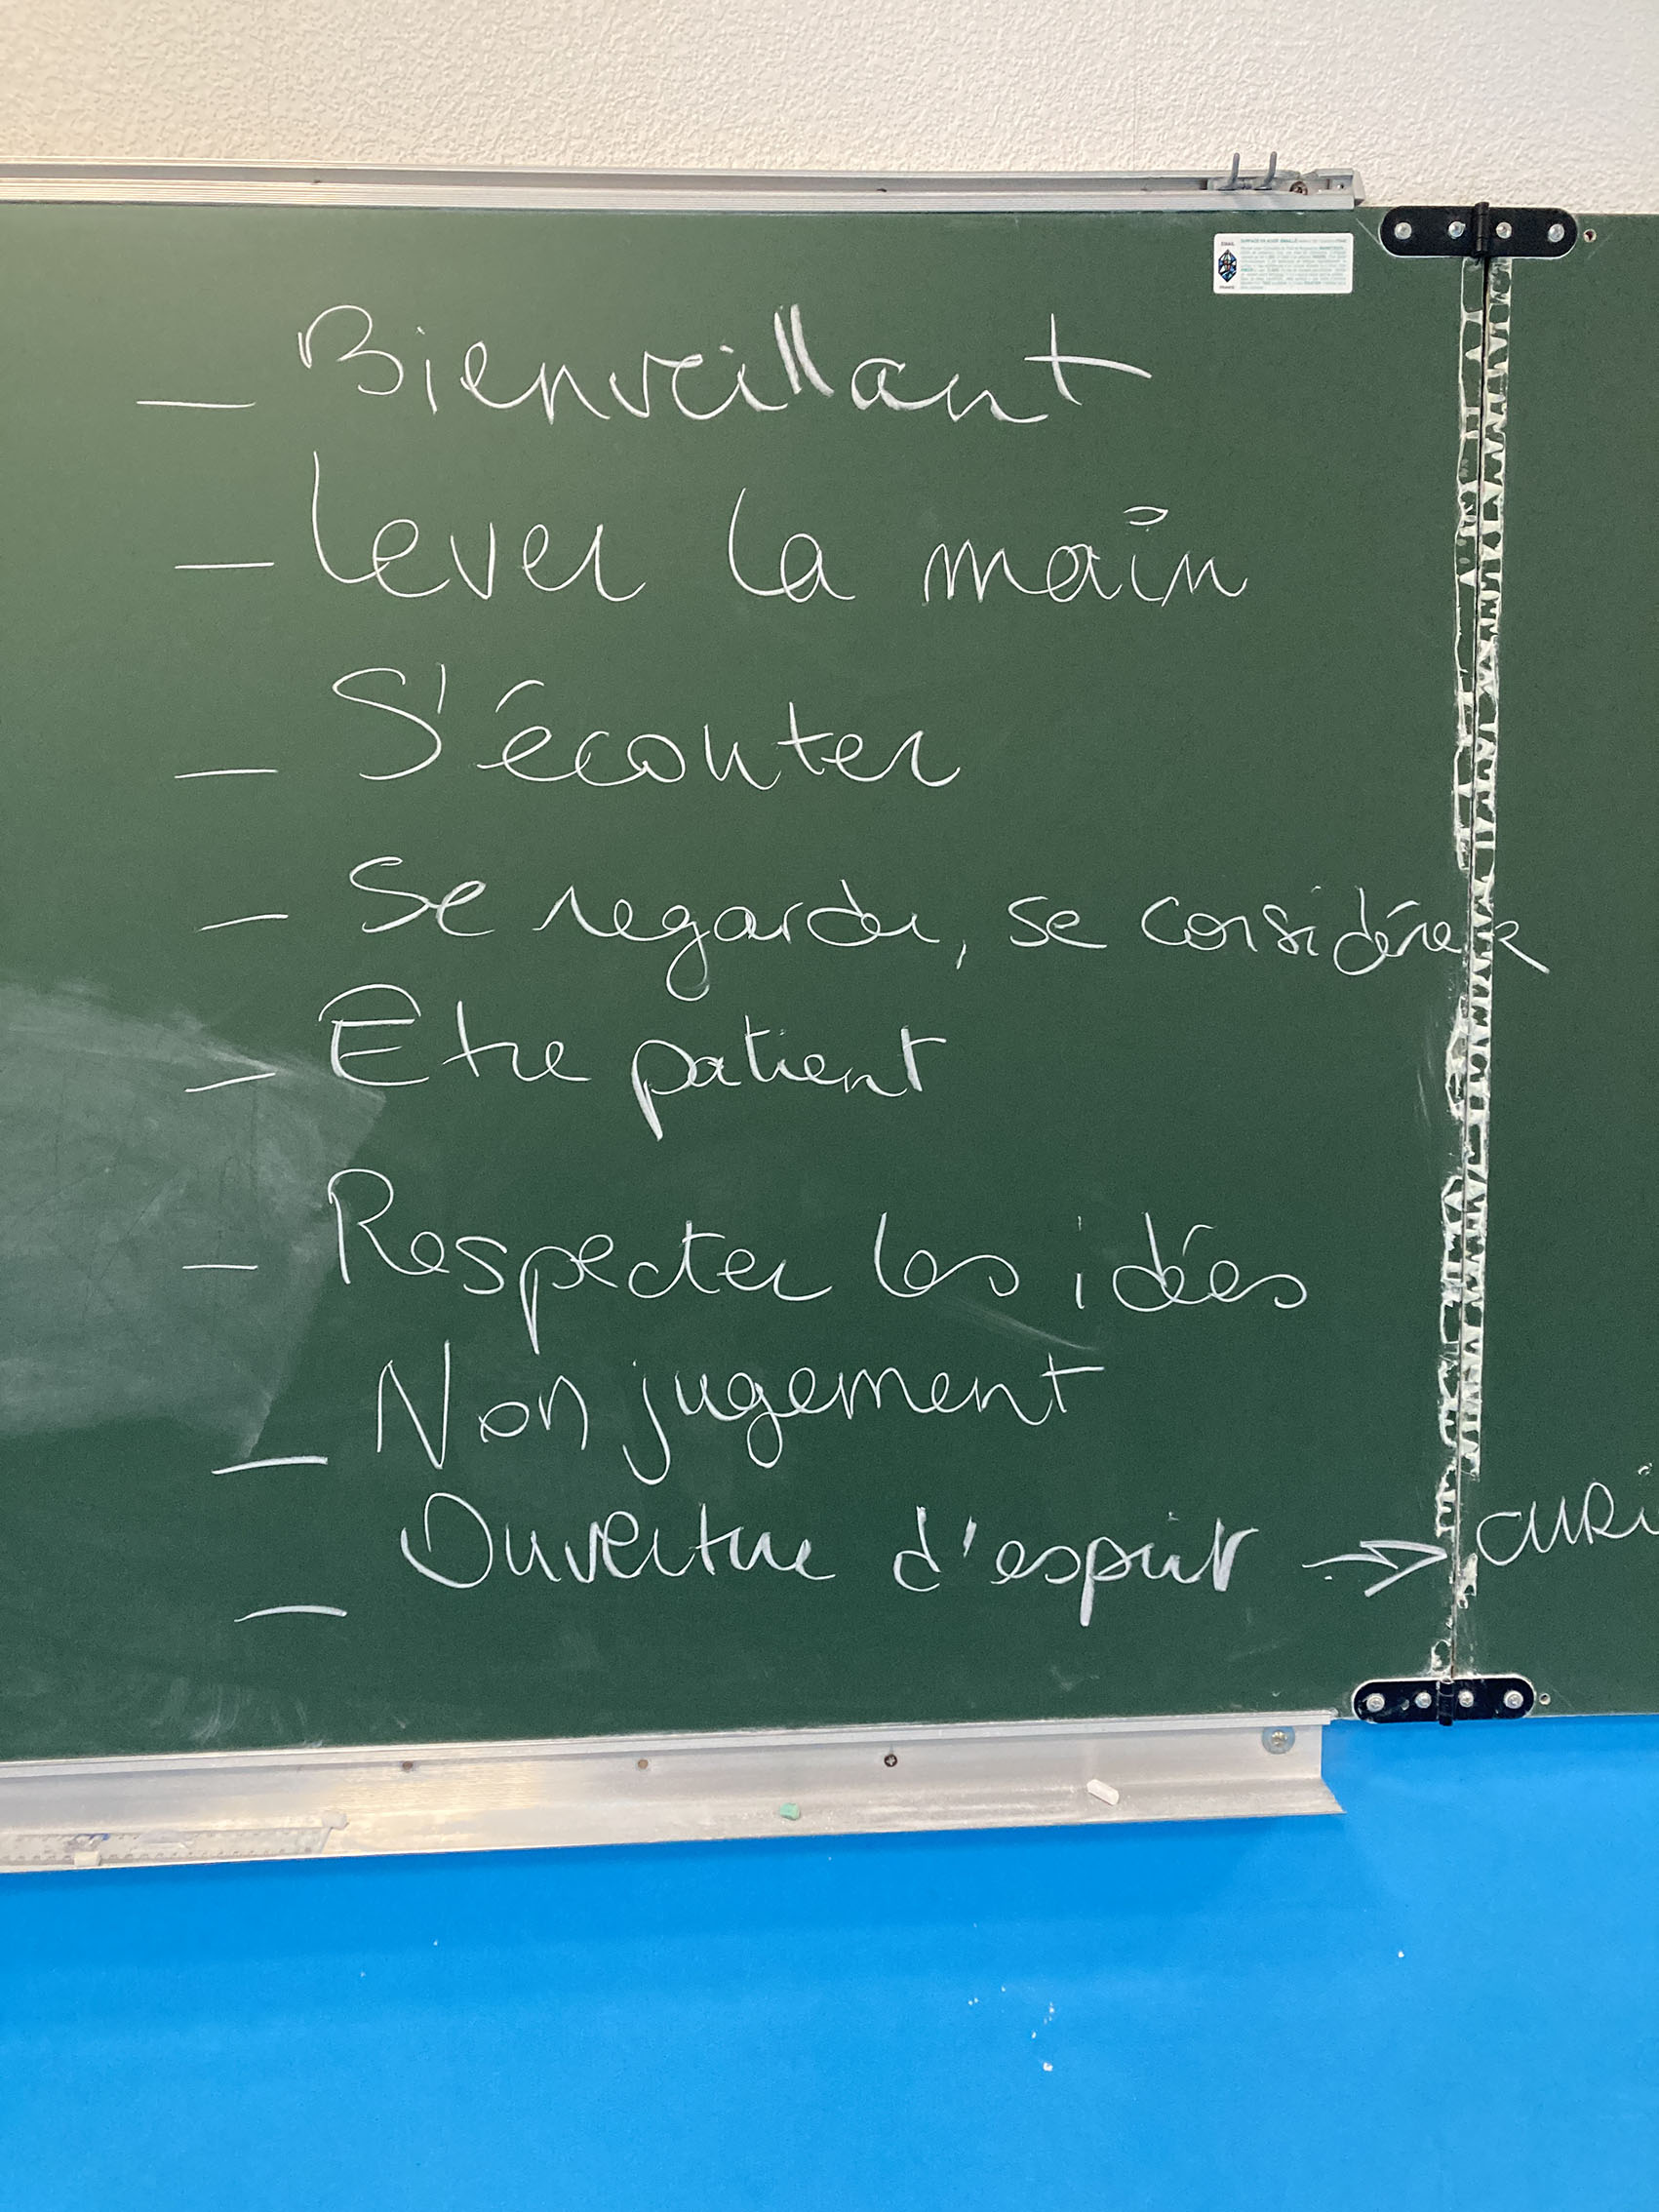 - Bienveillant
- Lever la main
- S'écouter
- Se regarder, se considérer
- Etre patient
- Respecter les idées
- Non jugement
- Ouverture d'esprit → curi
EMAIL
FRANCE